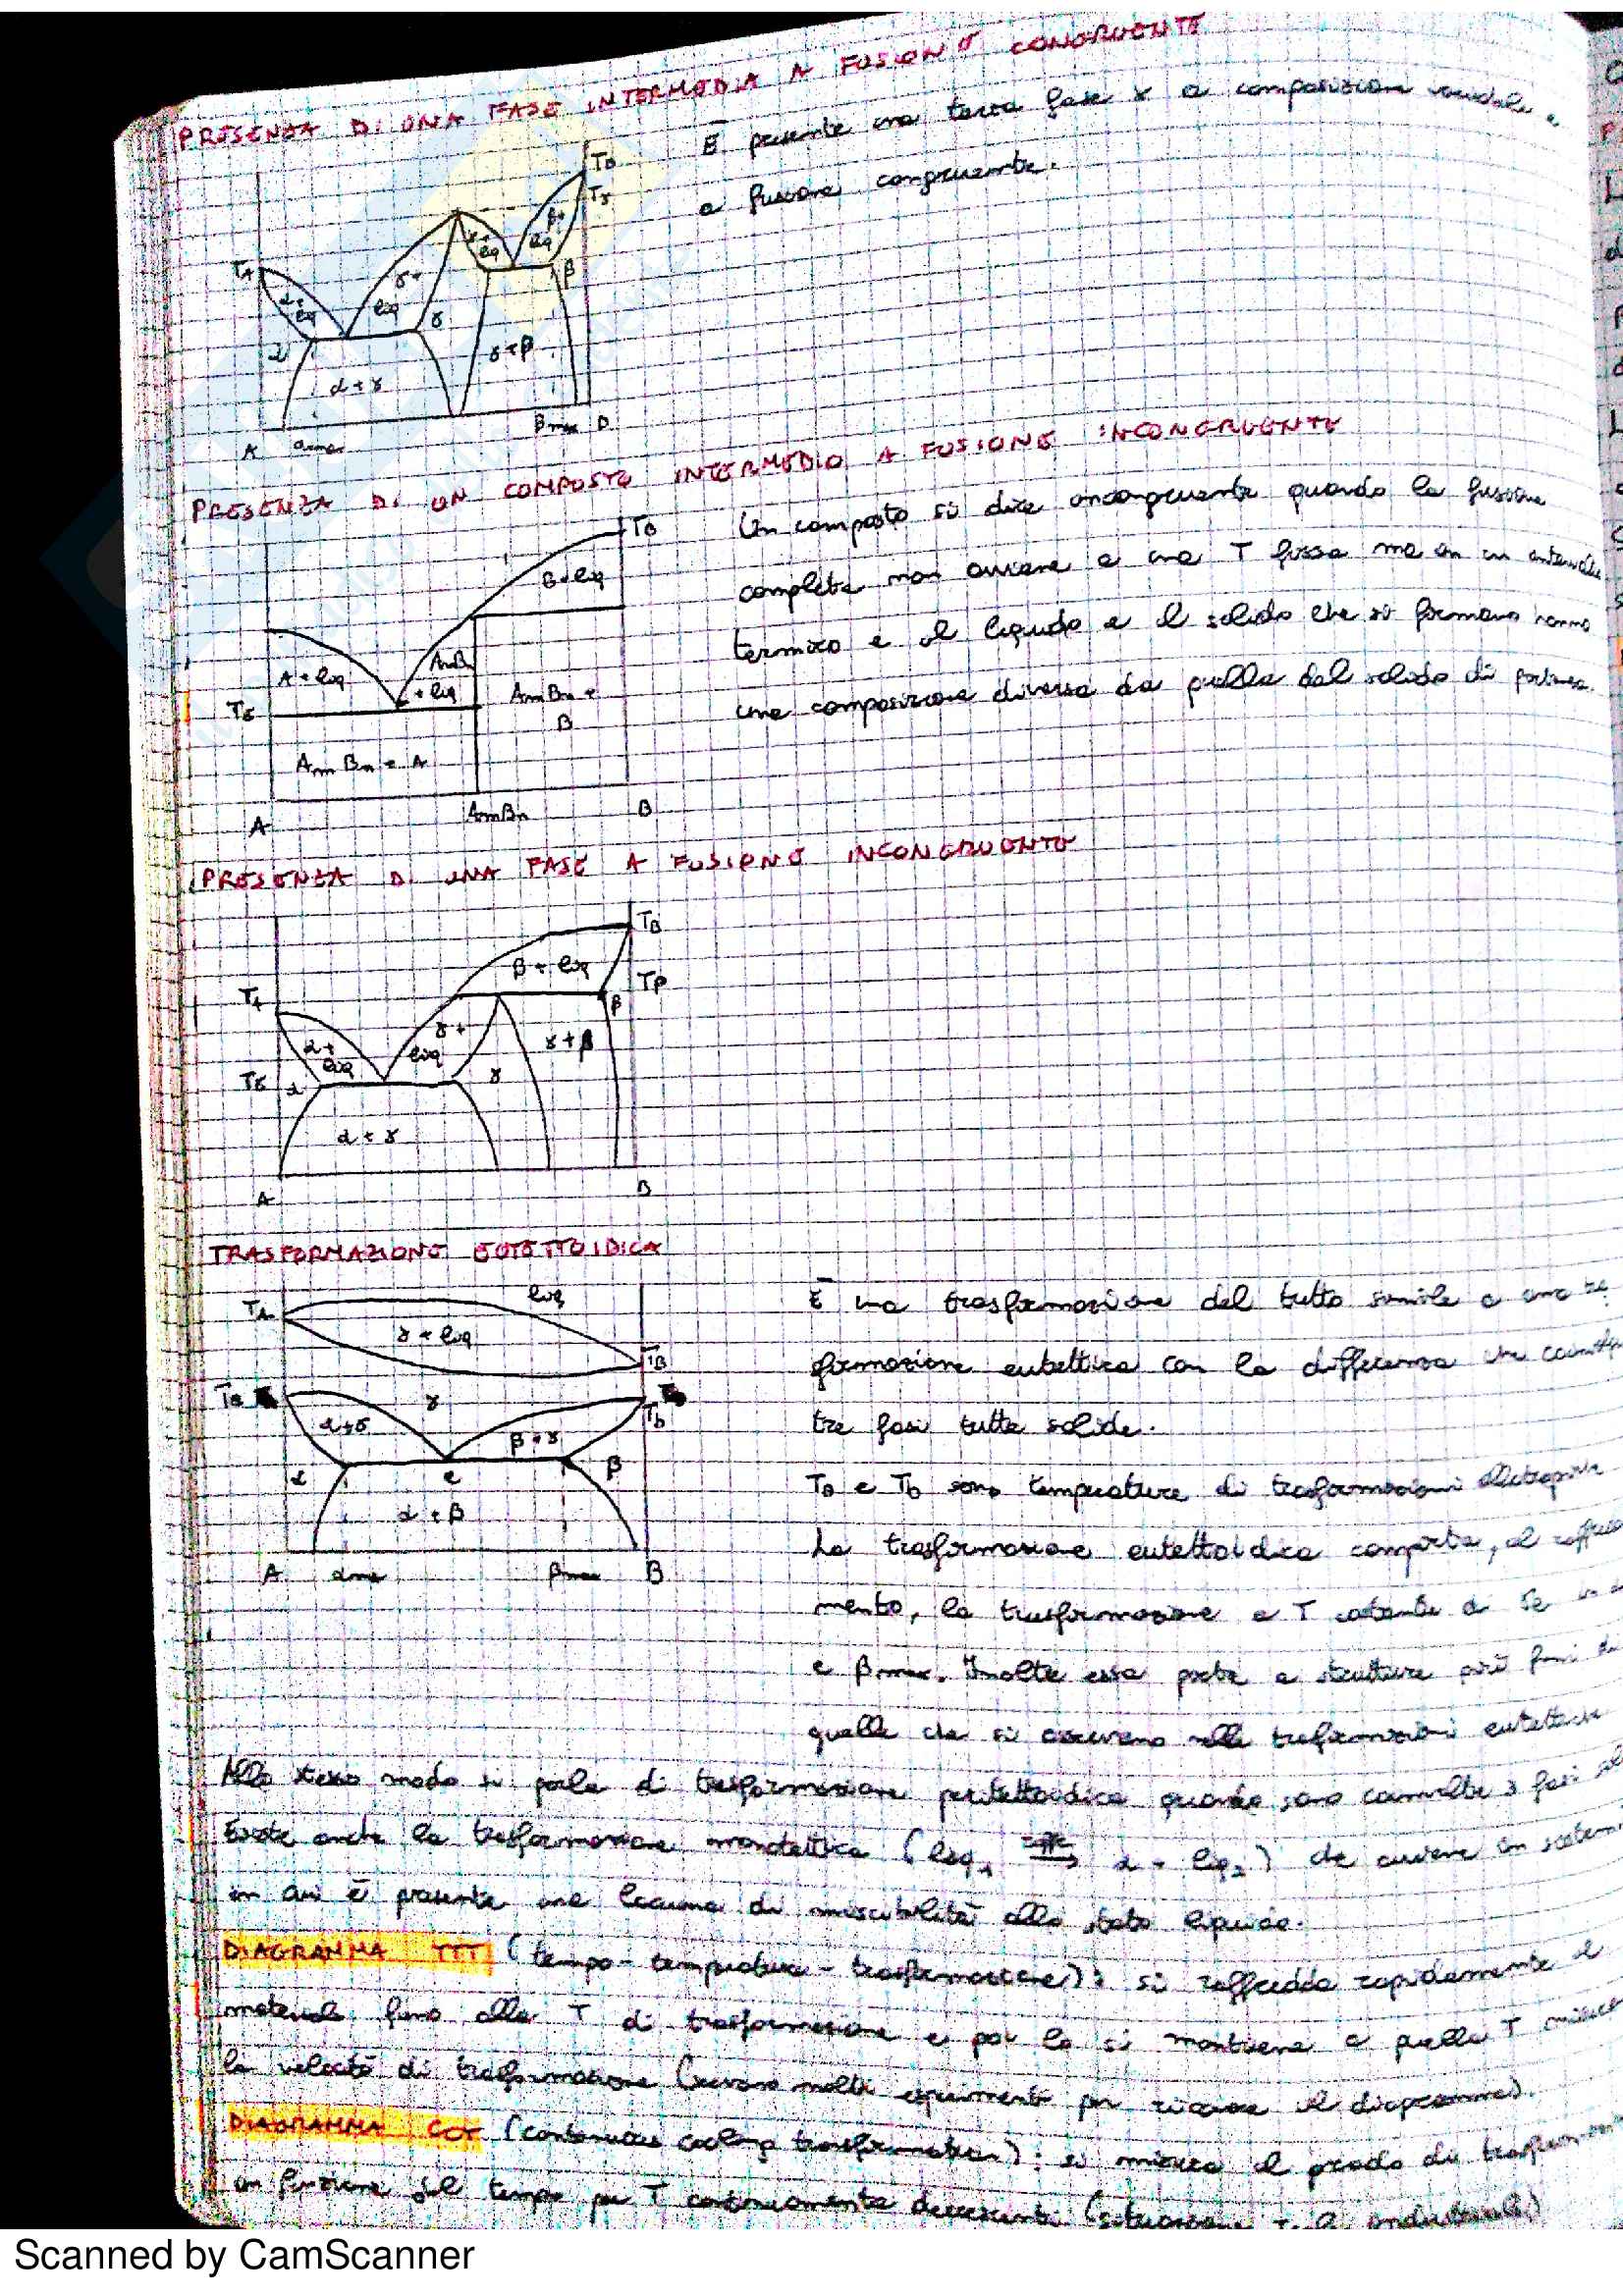 PRESENZA DI UNA FASE INTERMEDIA A FUSIONE CONGRUENTE
È presente una terza fase γ a composizione variabile e
a fusione congruente.
TB
Tγ
TA
α+
liq
γ+
liq
γ+
liq
β+
liq
β
α
γ
γ+β
α+γ
A αmax βmax B
PRESENZA DI UN COMPOSTO INTERMEDIO A FUSIONE INCONGRUENTE
Un composto si dice incongruente quando la fusione
completa non avviene a una T fissa ma in un intervallo
termico e il liquido e il solido che si formano hanno
una composizione diversa da quella del solido di partenza.
TB
B+liq
A+liq
AmBn
+liq
AmBn +
B
TE
AmBn + A
A AmBn B
PRESENZA DI UNA FASE A FUSIONE INCONGRUENTE
TB
β+liq
TP
TA
β
γ+
liq
γ+β
α+
liq
TE
α
γ
α+γ
A B
TRASFORMAZIONE EUTETTOIDICA
TA
liq
γ+liq
TB
Ta
γ
Tb
α+γ
β+γ
α
e
β
α+β
A αmax βmax B
È una trasformazione del tutto simile a una
formazione eutettica con la differenza che
tre fasi tutte solide.
Ta e Tb sono temperature di trasformazioni
La trasformazione eutettoidica comporta, al
mento, la trasformazione a T costante di
e βmax. Inoltre essa porta a strutture più fini di
quelle che si osservano nelle trasformazioni eutettiche
Allo stesso modo si parla di trasformazione peritettoidica quando sono coinvolte 3 fasi
Esiste anche la trasformazione monotettica (liq1 → α + liq2) che avviene in sistemi
in cui è presente una lacuna di miscibilità allo stato liquido.
DIAGRAMMA TTT (tempo-temperatura-trasformazione): si raffredda rapidamente il
materiale fino alla T di trasformazione e poi lo si mantiene a quella T
la velocità di trasformazione (servono molti esperimenti per ricavare il diagramma).
DIAGRAMMA CCT (continuous cooling transformation): si misura il grado di
in funzione del tempo per T continuamente decrescenti
Scanned by CamScanner